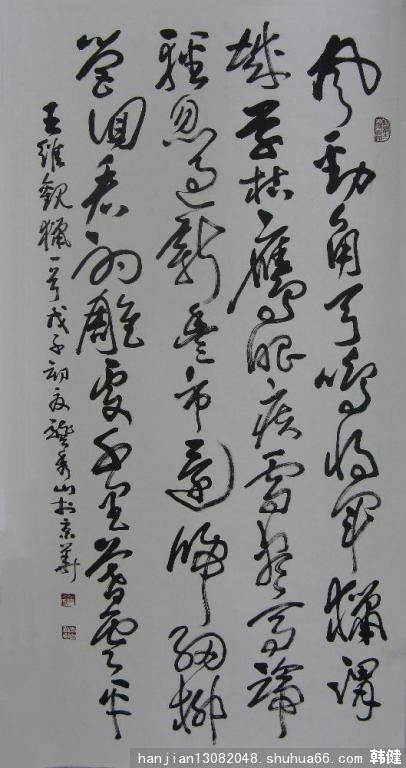 風勁角弓鳴將軍獵渭
城草枯鷹眼疾雪盡馬蹄
輕忽過新豐市還歸細柳
營回看射雕處千里暮雲平
王維觀獵一首戊子初夏龔秀山於京華
hanjian13082048.shuhua66.com 韩健